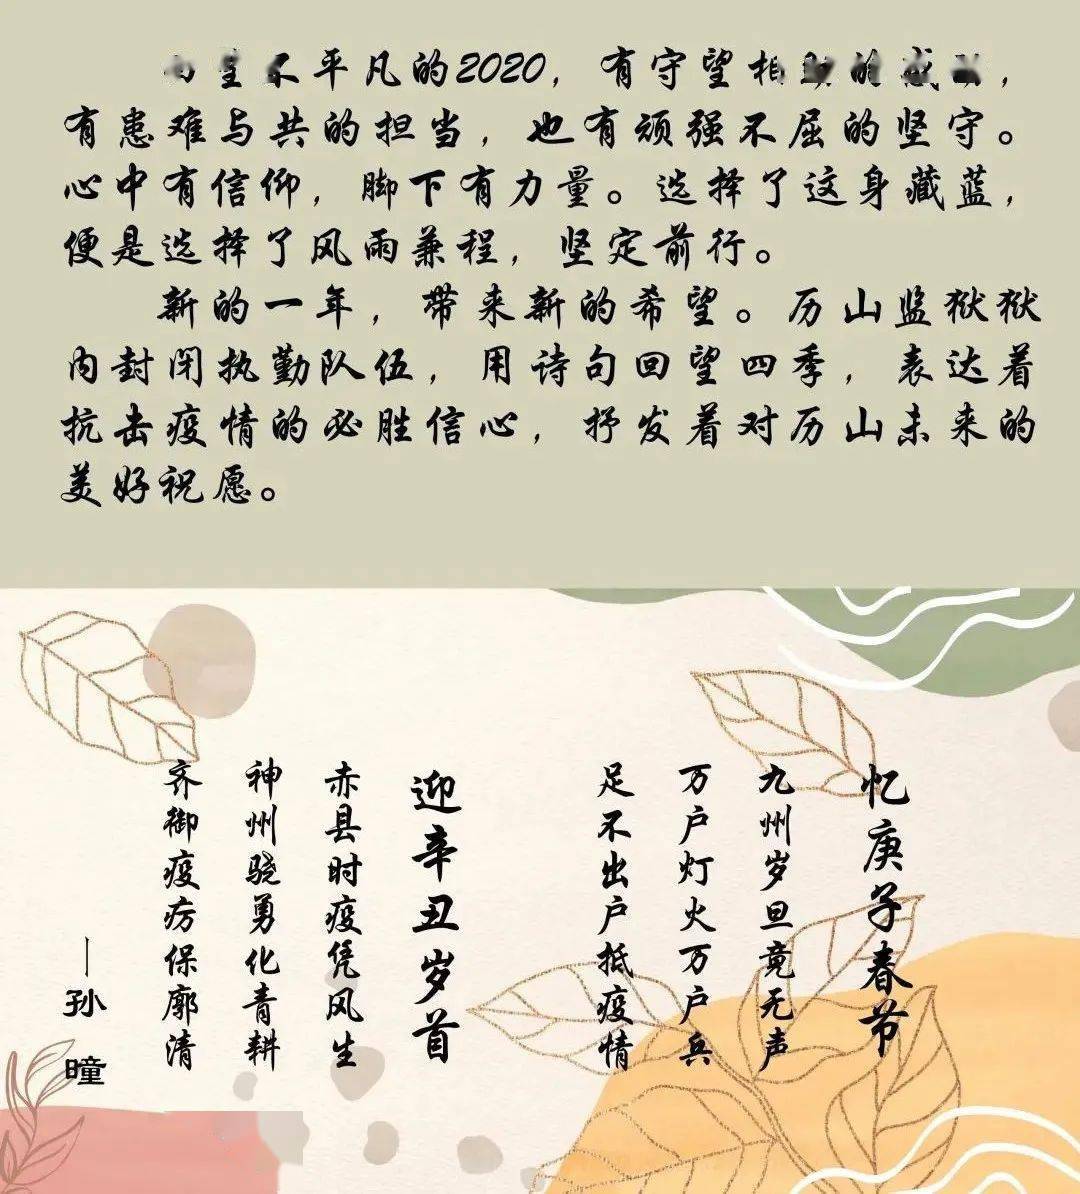 不平凡的2020，有守望相助的感动，
有患难与共的担当，也有顽强不屈的坚守。
心中有信仰，脚下有力量。选择了这身藏蓝，
便是选择了风雨兼程，坚定前行。
新的一年，带来新的希望。历山监狱狱
内封闭执勤队伍，用诗句回望四季，表达着
抗击疫情的必胜信心，抒发着对历山未来的
美好祝愿。
忆庚子春节
九州岁旦竟无声
万户灯火万户兵
足不出户抵疫情
迎辛丑岁首
赤县时疫凭风生
神州骁勇化青耕
齐御疫疠保廓清
—孙曈